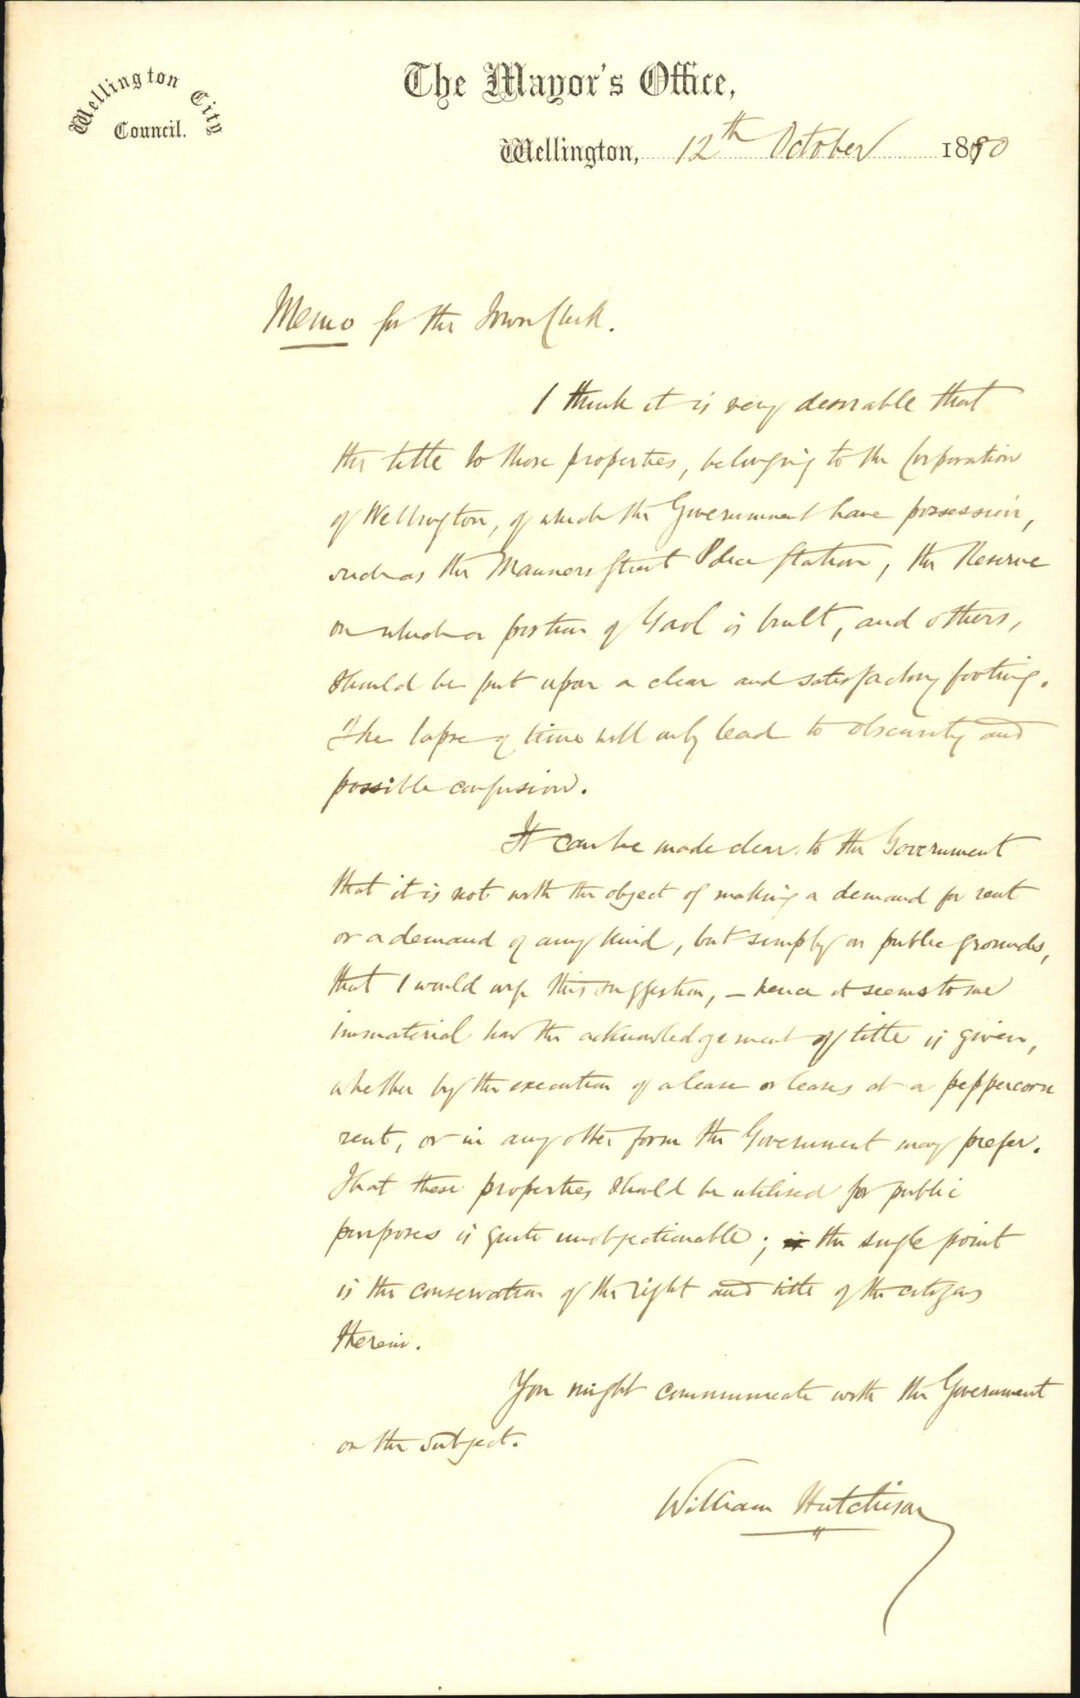 Wellington City
Council.
The Mayor's Office,
Wellington, 12th October 1880
Memo for the Town Clerk.
I think it is very desirable that
the title to those properties, belonging to the Corporation
of Wellington, of which the Government have possession,
such as the Manners Street Police Station, the Reserve
on which a portion of Gaol is built, and others,
should be put upon a clear and satisfactory footing.
The lapse of time will only lead to obscurity and
possible confusion.
It can be made clear to the Government
that it is not with the object of making a demand for rent
or a demand of any kind, but simply on public grounds,
that I would urge this suggestion, – hence it seems to me
immaterial how the acknowledgement of title is given,
whether by the execution of a lease or leases at a peppercorn
rent, or in any other form the Government may prefer.
That these properties should be utilised for public
purposes is quite unobjectionable; the single point
is the conservation of the right and title of the citizens
therein.
You might communicate with the Government
on the subject.
William Hutchison